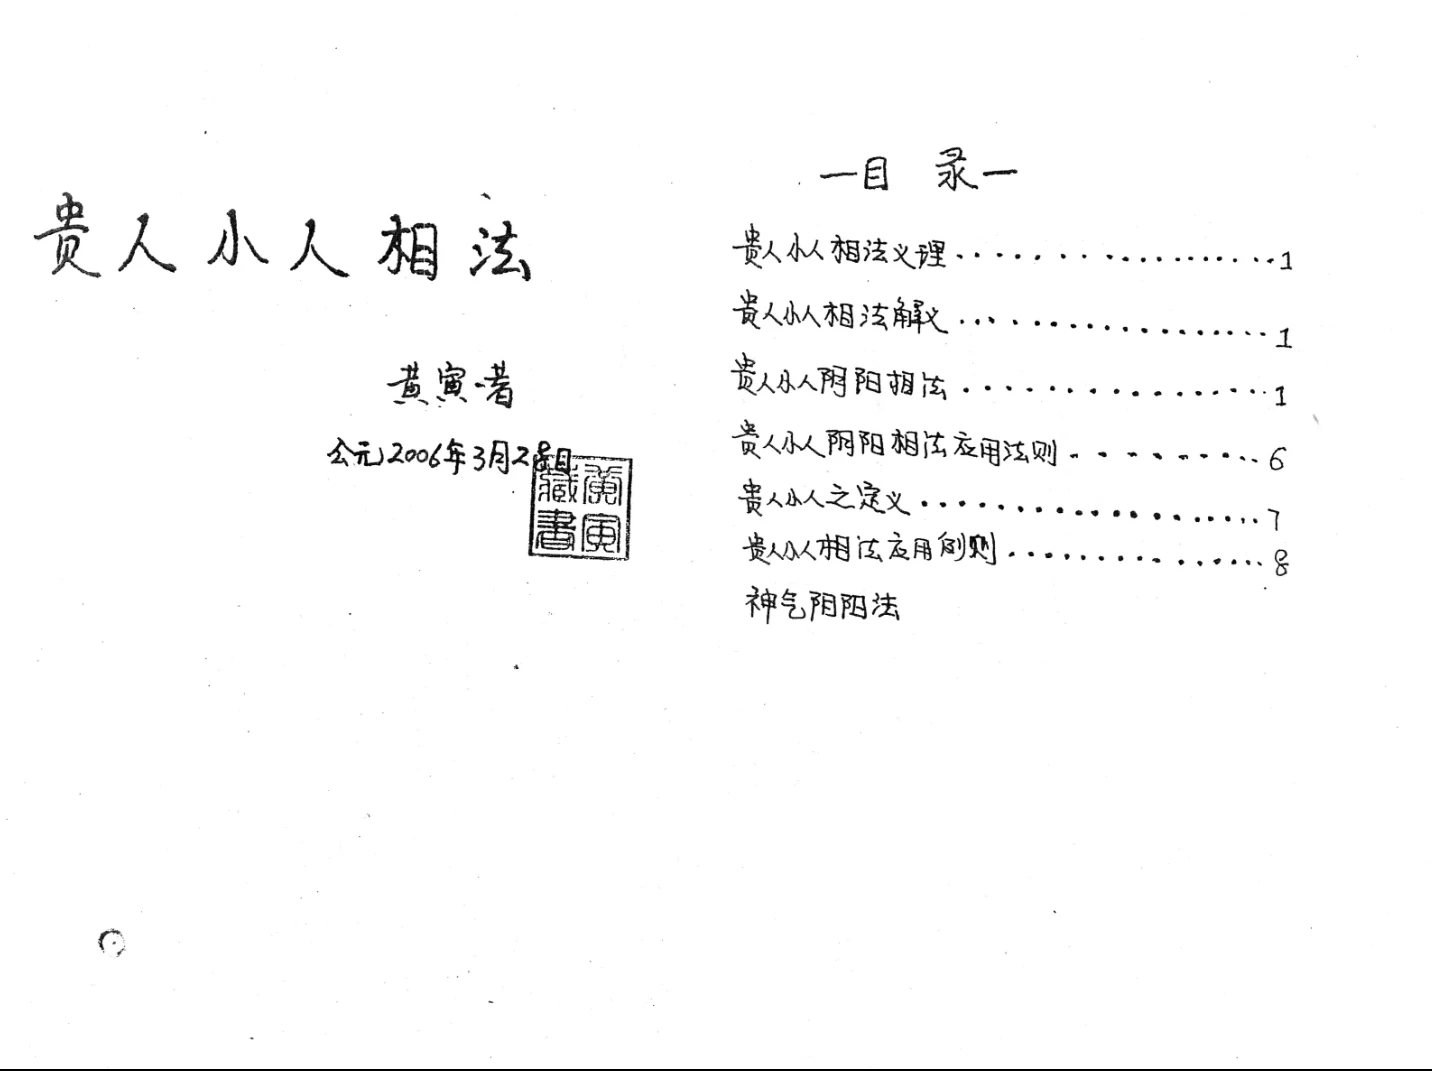 贵人小人相法
黄寅·著
公元2006年3月28日
黄寅
藏書
—目 录—
贵人小人相法义理····················1
贵人小人相法解义··················1
贵人小人阴阳相法·················1
贵人小人阴阳相法应用法则··········6
贵人小人之定义···················7
贵人小人相法应用例则···············8
神气阴阳法